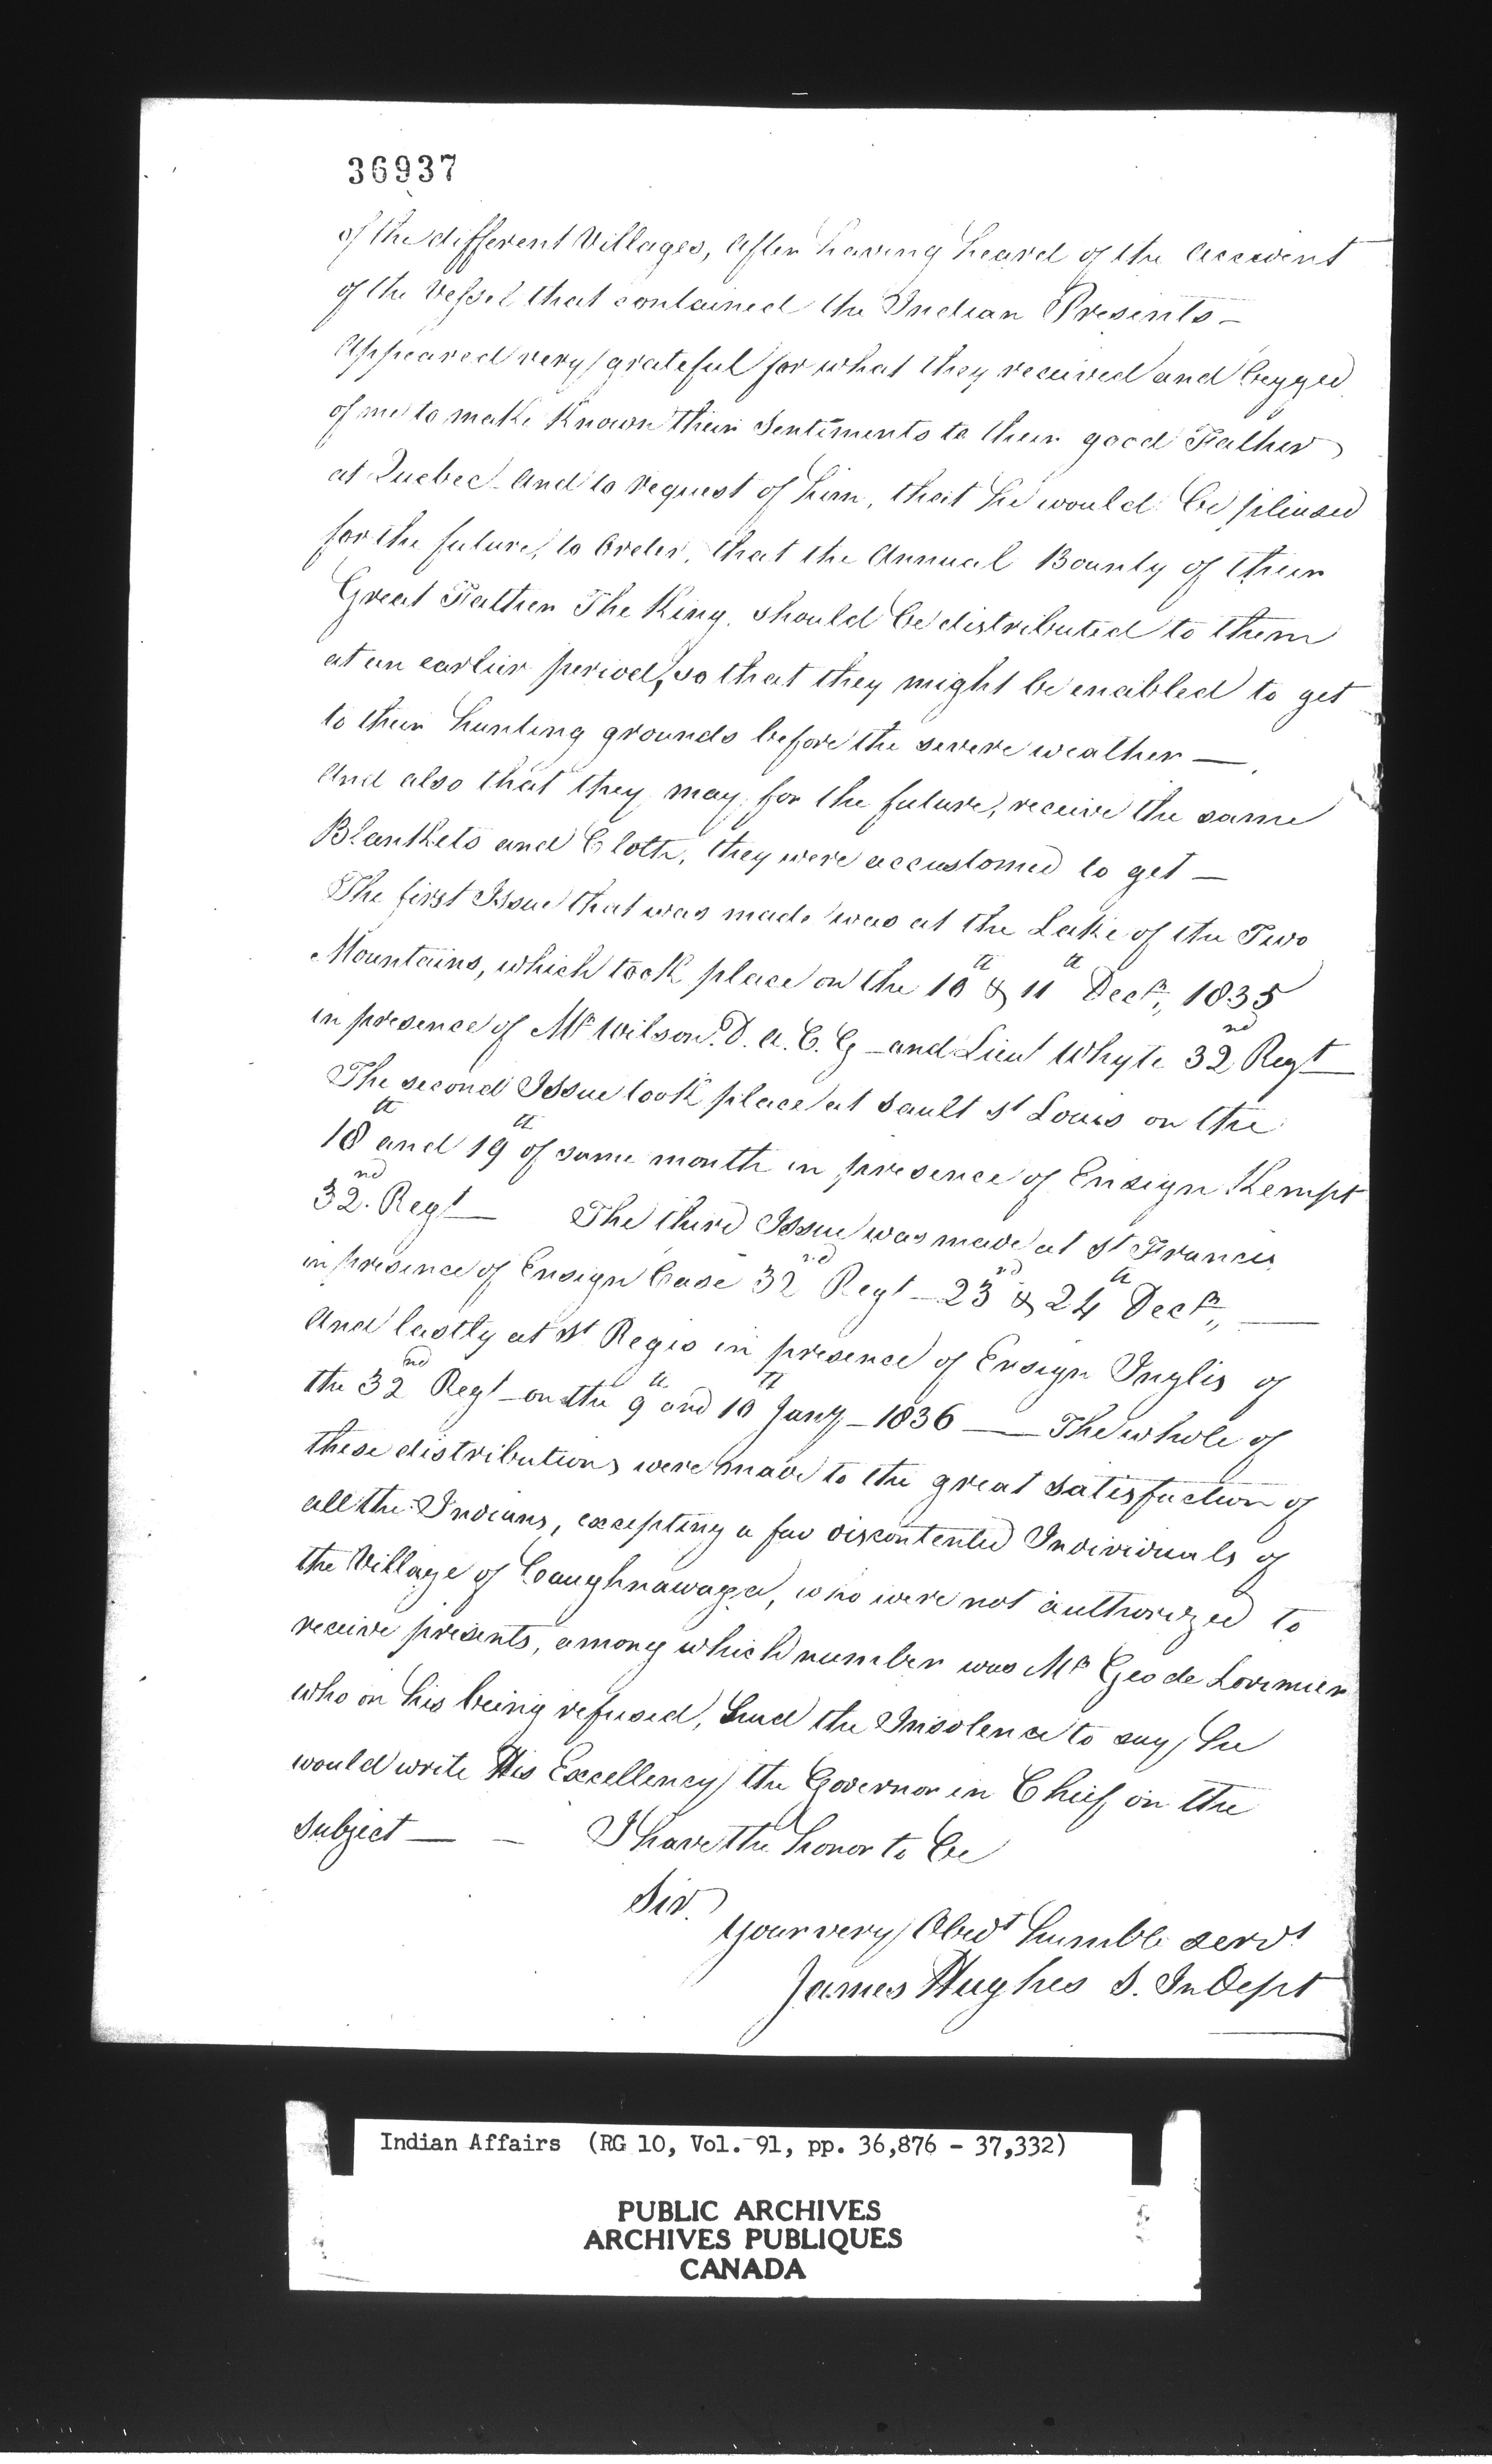 36937
of the different Villages, after having heard of the accident
of the Vessel that contained the Indian Presents —
Appeared very grateful for what they received and begged
of me to make known their Sentiments to their good Father
at Quebec and to request of him, that he would be pleased
for the future, to Order, that the Annual Bounty of their
Great Father The King, should be distributed to them
at an earlier period, so that they might be enabled to get
to their hunting grounds before the severe weather —
And also that they may, for the future, receive the same
Blankets and Cloth, they were accustomed to get —
The first Issue that was made was at the Lake of the Two
Mountains, which took place on the 10th & 11th Decr, 1835
in presence of Mr Wilson D. A. C. G — and Lieut Whyte 32nd Regt —
The second Issue took place at Sault St Louis on the
18th and 19th of same month in presence of Ensign Kempt
32nd Regt — The third Issue was made at St Francis
in presence of Ensign Case 32nd Regt — 23rd & 24th Decr, —
And lastly at St Regis in presence of Ensign Inglis of
the 32nd Regt — on the 9th and 10th Jany — 1836 — The whole of
these distributions were made to the great satisfaction of
all the Indians, excepting a few discontented Individuals of
the Village of Caughnawaga, who were not authorized to
receive presents, among which number was Mr Geo de Lorimier
who on his being refused, had the Insolence to say, he
would write His Excellency the Governor in Chief, on the
subject — — I have the honor to be
Sir.
Your very Obedt humble servt
James Hughes S. In Dept
Indian Affairs (RG 10, Vol. 91, pp. 36,876 - 37,332)
PUBLIC ARCHIVES
ARCHIVES PUBLIQUES
CANADA